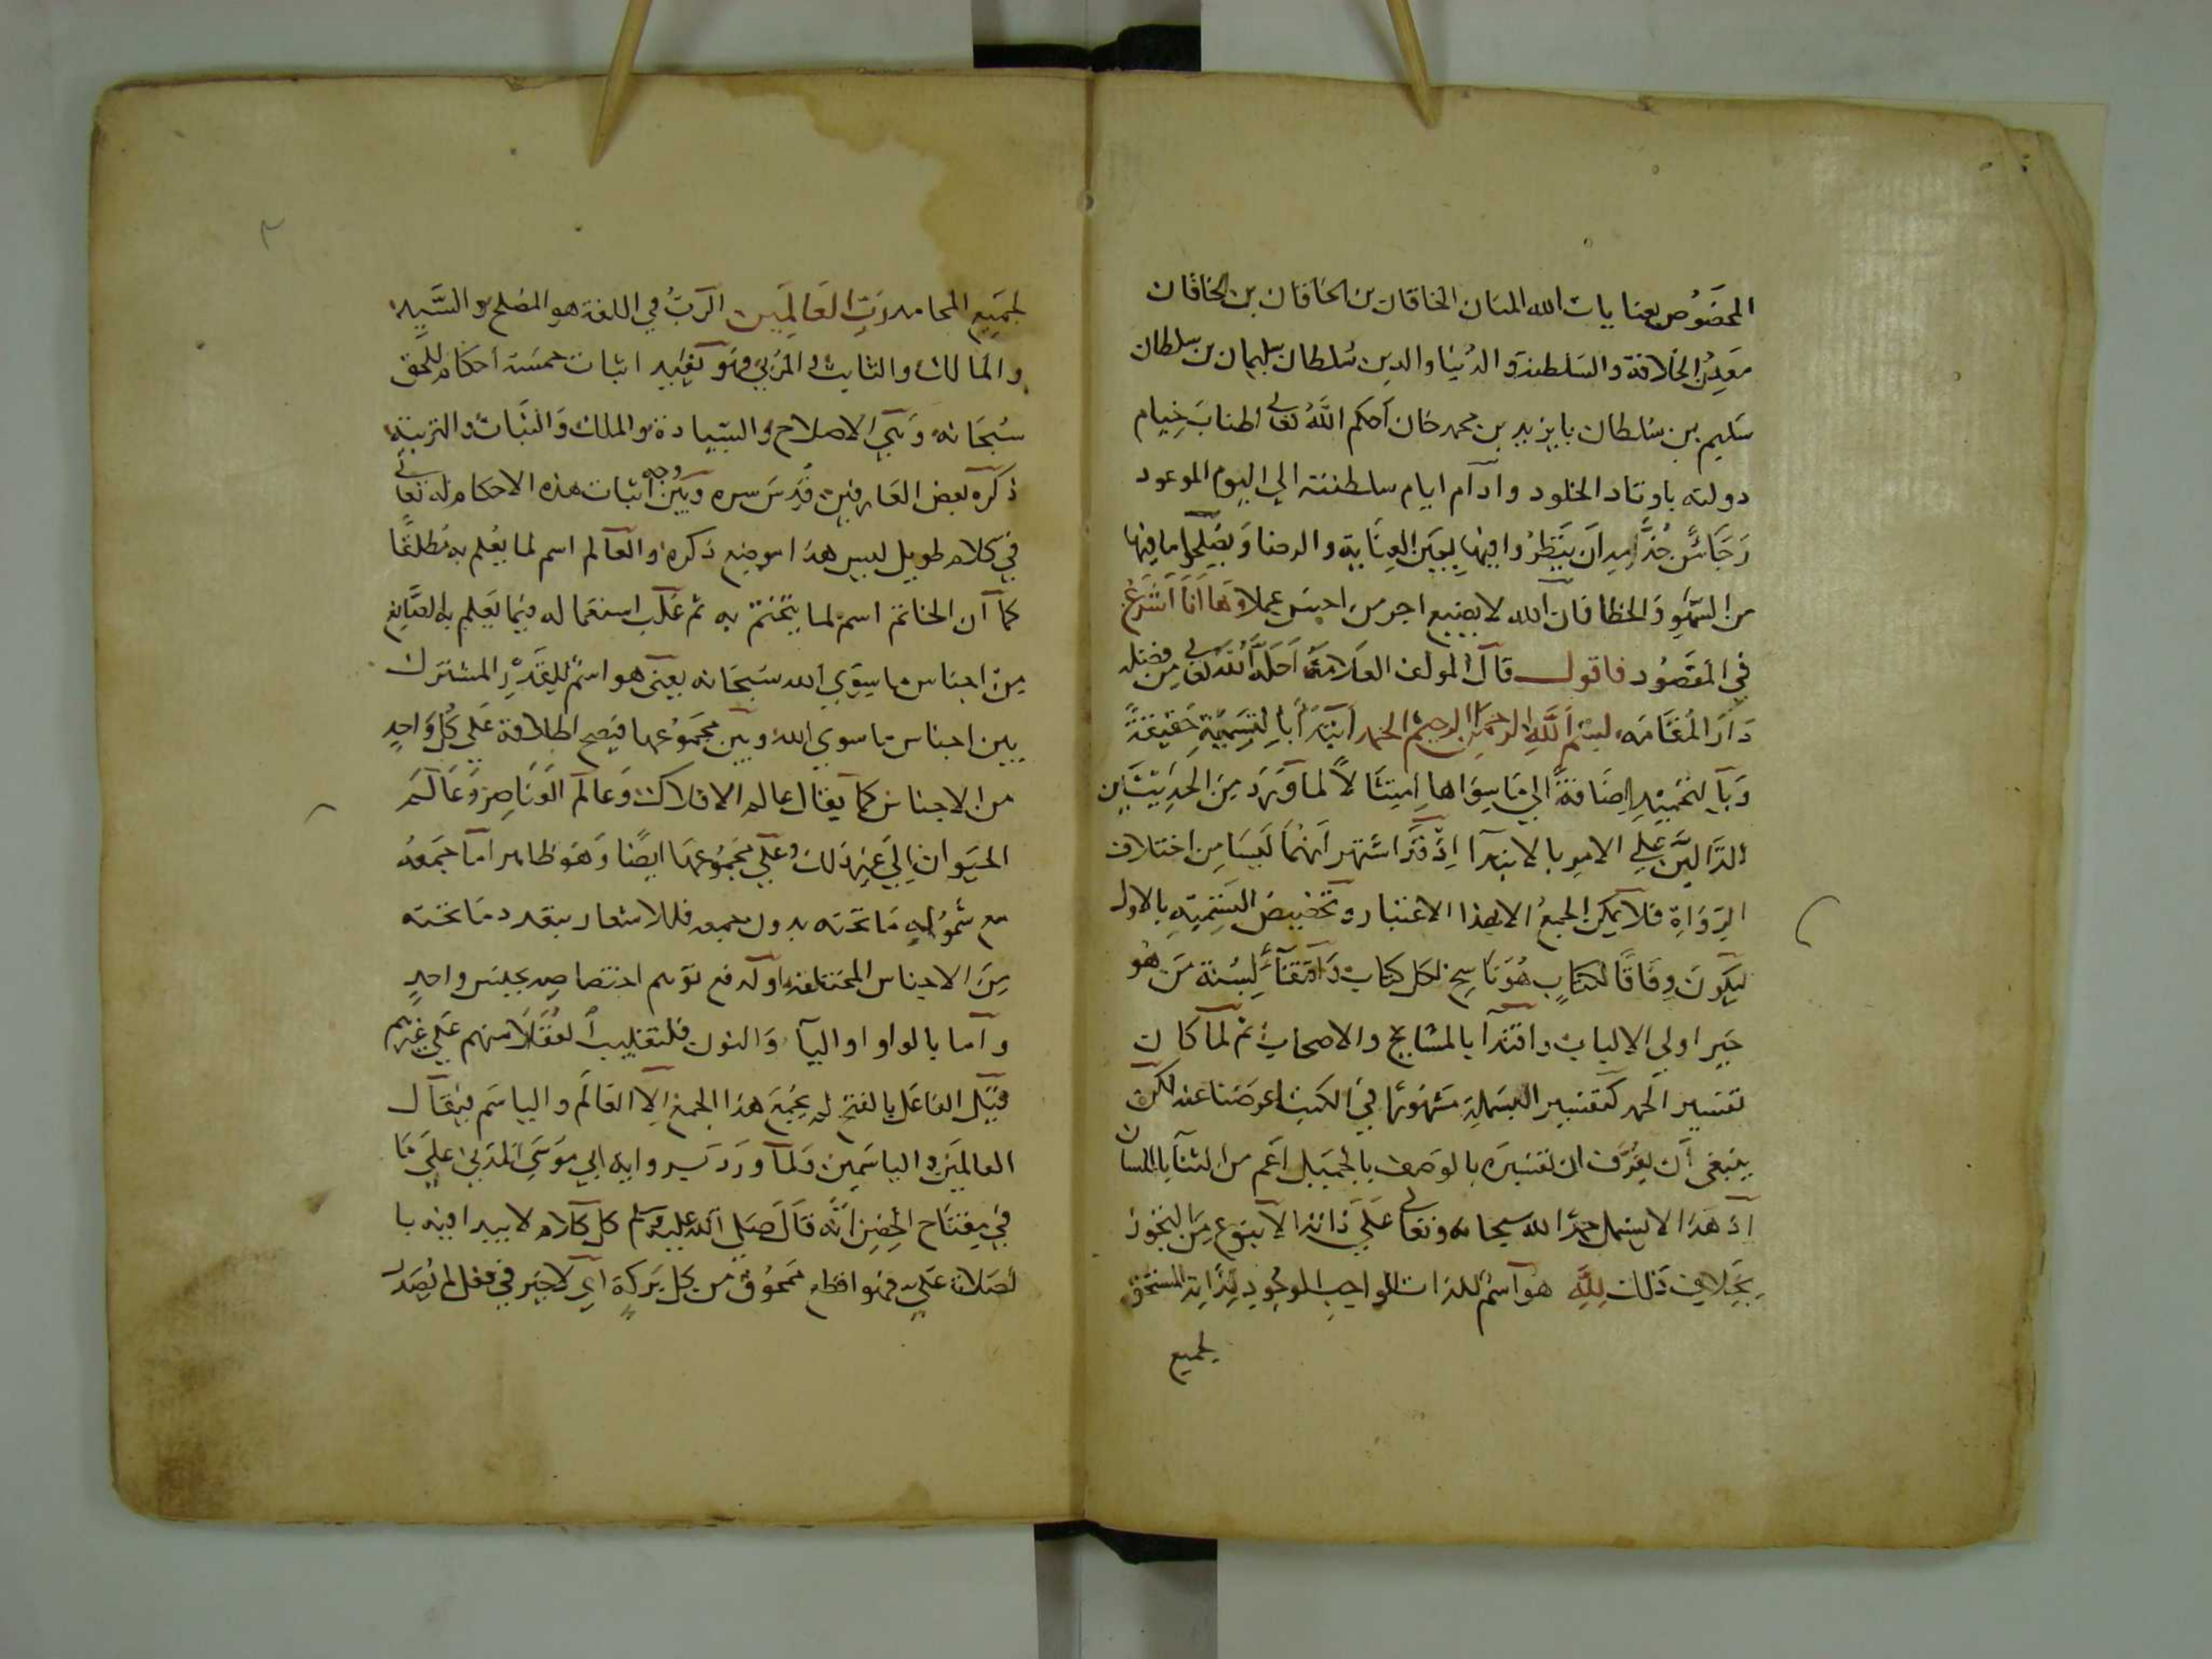 المخصُوص بعنايات الله المنان الخاقان بن الخاقان بن الخاقان
معدن الخلافة والسلطنة والدنيا والدين سُلطان سليمان بن سلطان
سليم بن سُلطان بايزيد بن محمد خان أحكم اللهُ تعالى اطنابَ خيام
دولته باوتاد الخلود وادام ايام سلطنته الي اليوم الموعود
ان ينظرُوا فيها بعين العناية والرضا ويصلحوا ما فيها
من السَّهو والخطا فان الله لا يضيع اجر من احسن عملا وها انا اشرع
في المقصُود فاقول قال المولف العلامة احله الله تعالى من فضله
دار المقامه بسم الله الرحمن الرحيم الحمد ابتدأ بالتسمية حقيقةً
وبالتحميد إضافةً الي ما سواها امتثالاً لما ورد من الحديثين
الدَّالين علي الامر بالابتدآ اذ قد اشتهر انهما ليسا من اختلاف
الرواة فلا يمكن الجمعُ الا بهذا الاعتبار وتخصيص التسمية بالاول
ليكون وفاقًا لكتاب هُو ناسخ لكل كتاب واقتفآء لسنة من هو
خير اولي الالباب واقتدآ بالمشايخ والاصحاب ثم لما كان
تفسير الحمد كتفسير البسملة مشهورًا في الكتب اعرضنا عنه لكن
ينبغي أن يعرف ان تفسيره بالوصف بالجميل اعم من الثنآ باللسان
اذ هذا لا يشمل حمد الله سبحانه وتعالى علي ذاته الا بنوع من التجوز
بخلاف ذلك لله هو اسمٌ للذات الواجب الوجود لذاته المستحق
لجميع
لجميع المحامد رب العالمين الربُّ في اللغة هو المصلح والسَّيد
والمالك والثابت والمربي وهو يفيد اثبات خمسة أحكام للحق
سُبحانه وهي الاصلاح والسيادة والملك والثبات والتربية
ذكره بعض العارفين قدس سره وبين وجه أثبات هذه الاحكام له تعالى
في كلام طويل ليس هذا موضع ذكره والعالم اسم لما يعلم به مُطلقًا
كما ان الخاتم اسم لما يختم به ثم غلب استعماله فيما يعلم به الصَّانع
من اجناس ما سوي الله سبحانه يعني هو اسم للقدر المشترك
بين اجناس ما سوي الله وبين مجموعها فيصح اطلاقه علي كل واحدٍ
من الاجناس كما يقال عالم الافلاك وعالم العناصر وعالم
الحيوان الي غير ذلك وعلي مجموعها ايضًا وهو ظاهر اما جمعه
مع شموله ما تحته بدون جمعه فللاشعار بتعدد ما تحته
من الاجناس المختلفة او لدفع توهم اختصاصه بجنس واحدٍ
واما بالواو او اليآ والنون فلتغليب العقلا منهم علي غيرهم
قيل الفاعل بالفتح لم يجئ هذا الجمع الا العالم والياسم فيقال
العالمين والياسمين ولما ورد رواية ابي موسى المدني علي ما
في مفتاح الحصن أنه قال صلي الله عليه وسلم كل كلام لا يبدا فيه با
لصلاة علي فهو اقطع ممحوق من كل بركة اي لا خير في فعل لم يُصدر